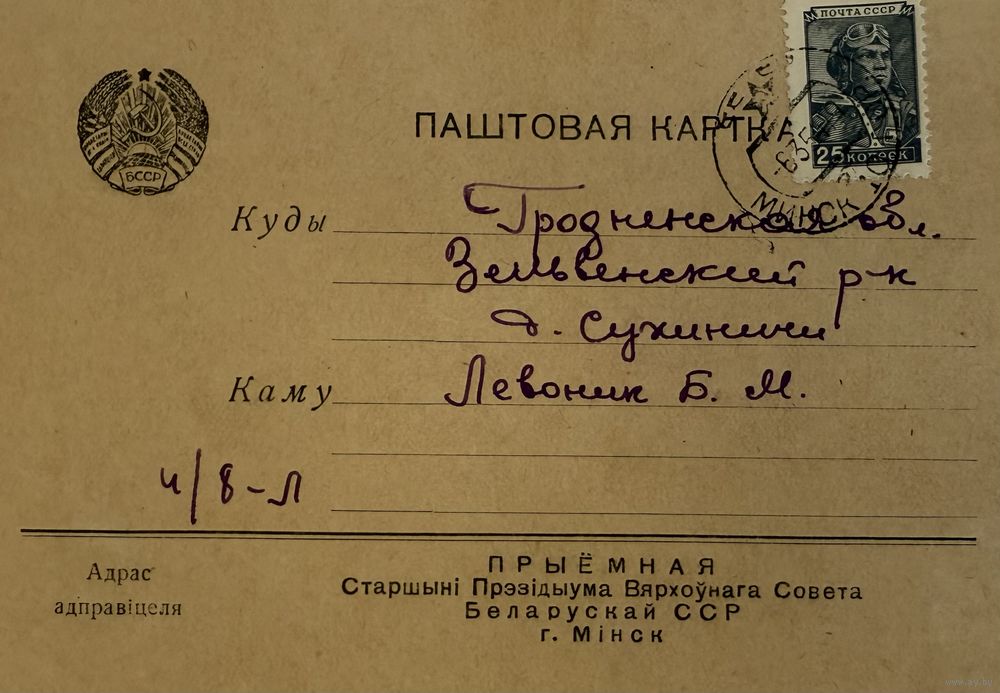 ПОЧТА СССР
25 КОПЕЕК
БССР
ПАШТОВАЯ КАРТКА
МИНСК
Куды Гродненская обл.
Зельвенский р-н
д. Сухиничи
Каму Левоник Б. М.
ч/8-Л
Адрас адпраўіцеля
ПРЫЁМНАЯ
Старшыні Прэзідыума Вярхоўнага Совета
Беларускай ССР
г. Мінск
www.ay.by